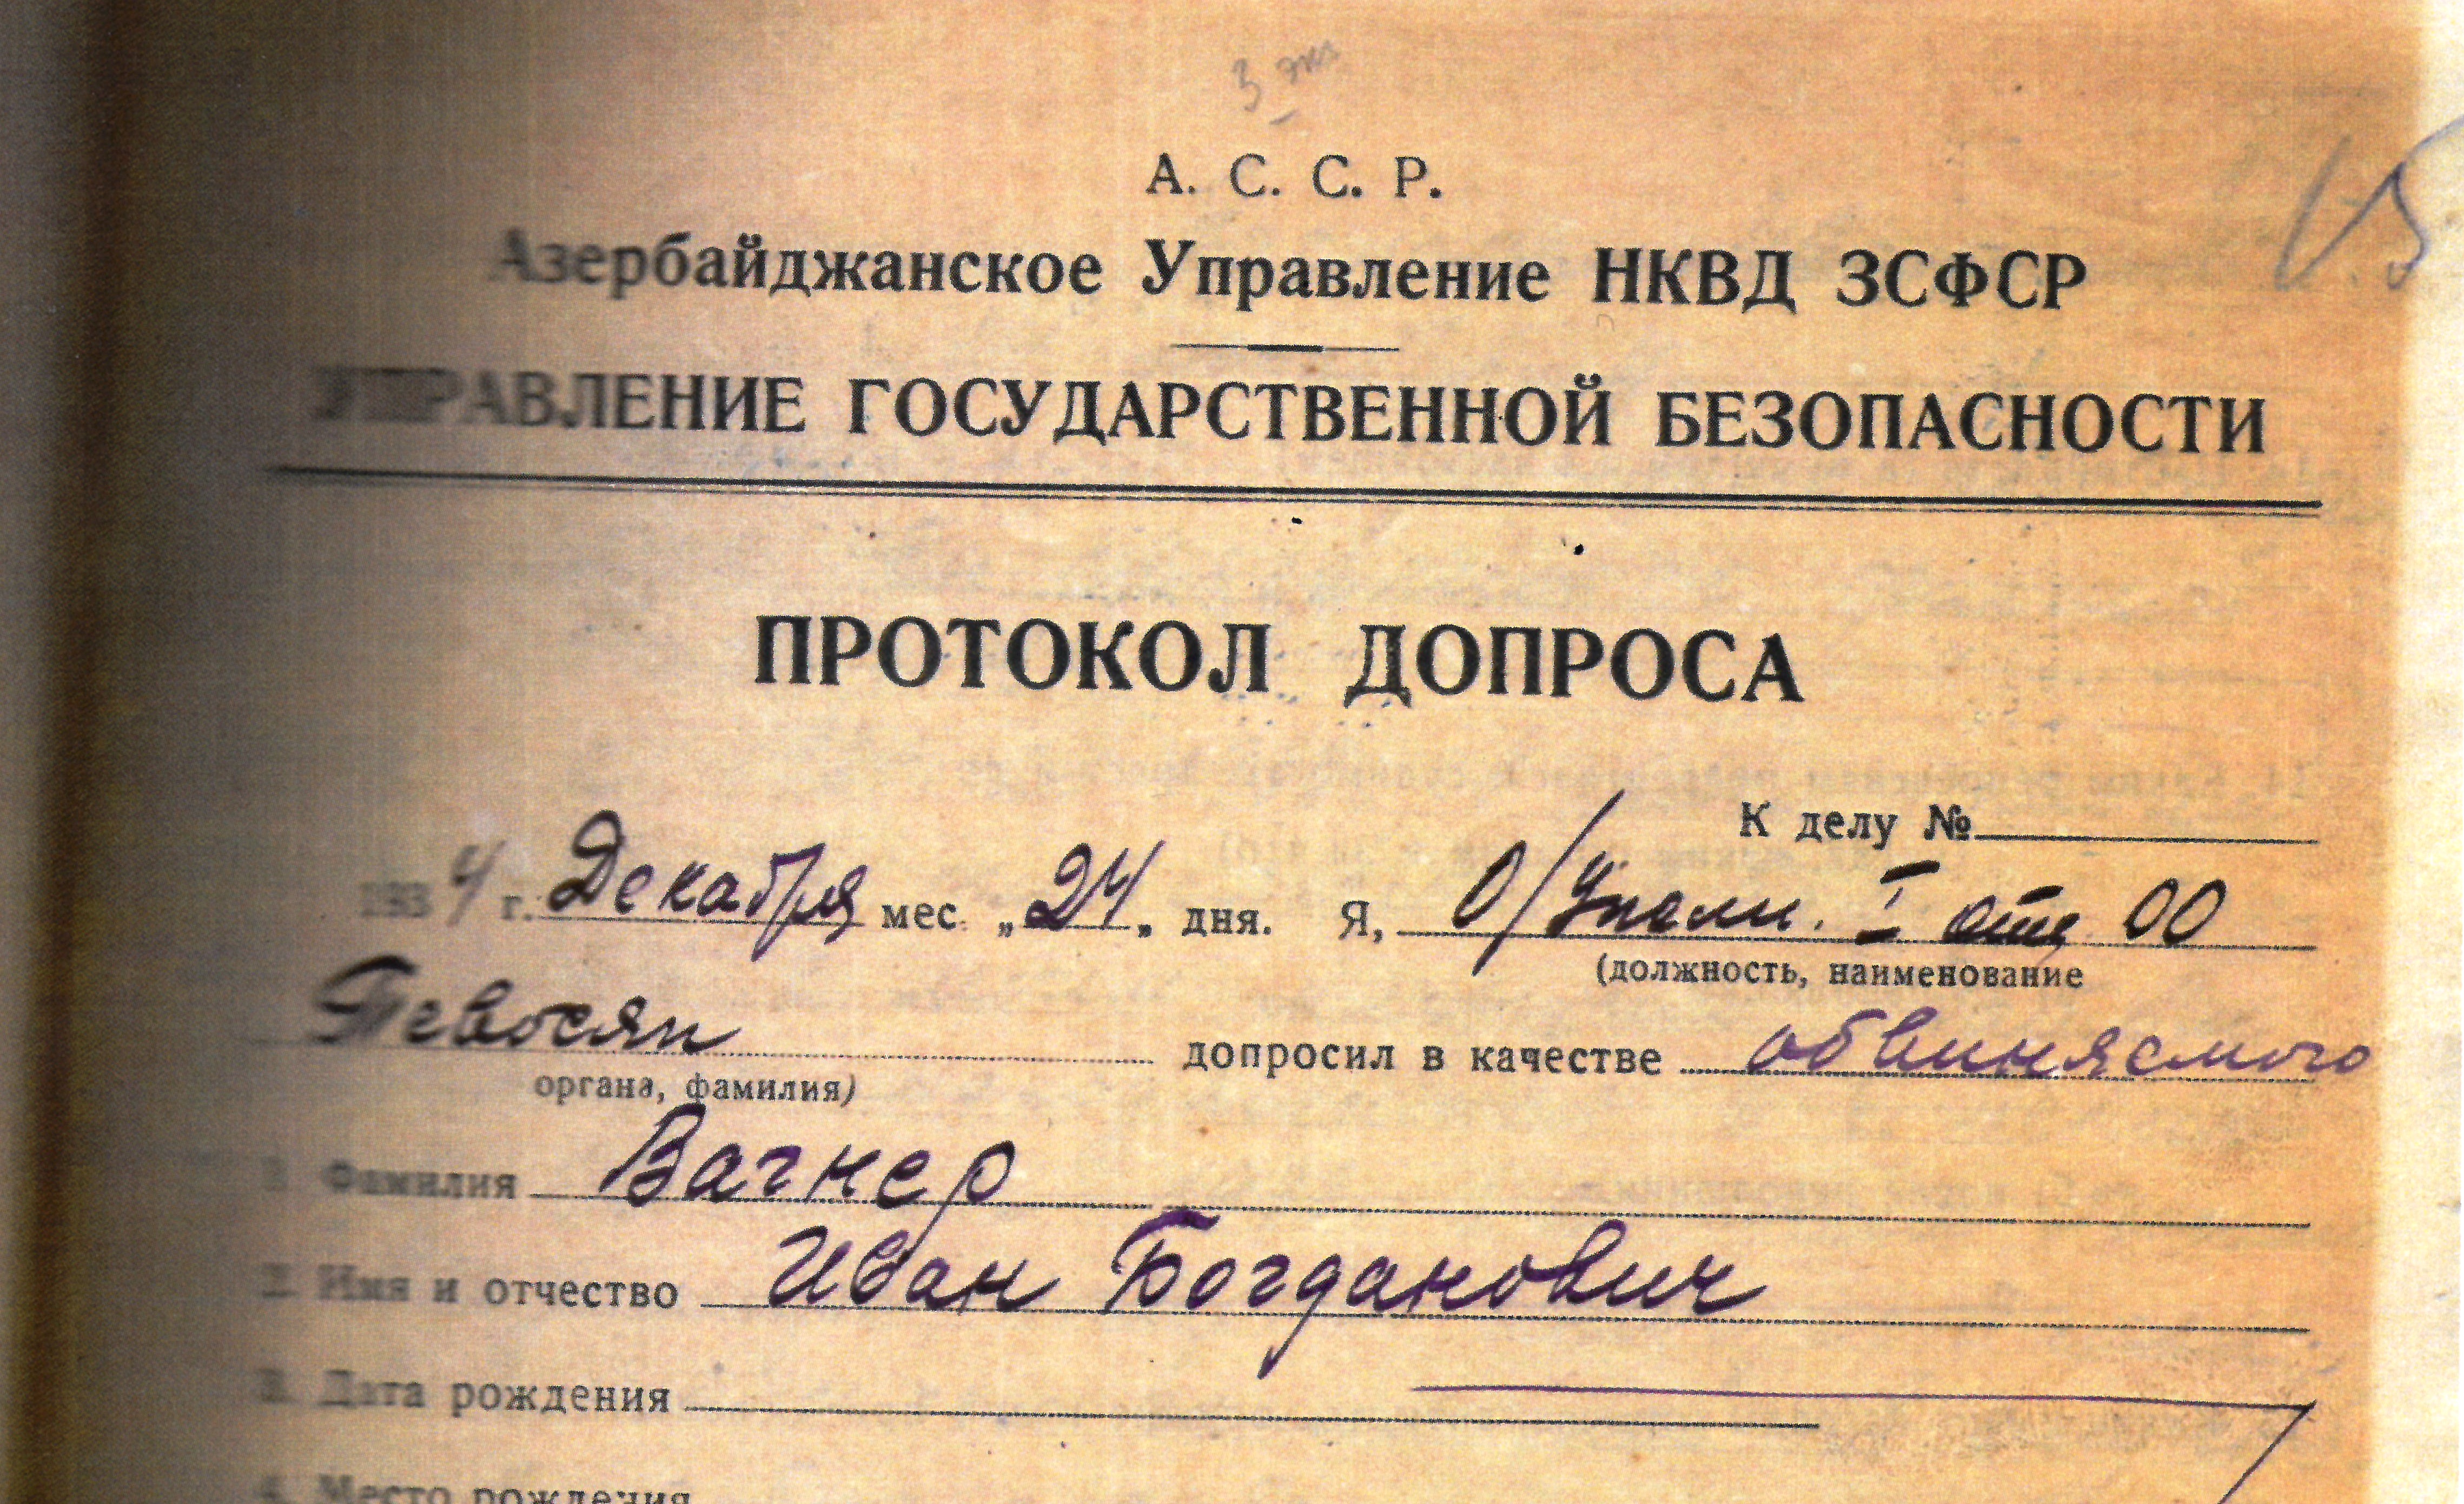 3 экз
А. С. С. Р.
Азербайджанское Управление НКВД ЗСФСР
УПРАВЛЕНИЕ ГОСУДАРСТВЕННОЙ БЕЗОПАСНОСТИ
ПРОТОКОЛ ДОПРОСА
К делу №
1934 г. Декабря мес. „24„ дня. Я, О/Уполн. I отд ОО
(должность, наименование
Тевосян допросил в качестве обвиняемого
органа, фамилия)
1. Фамилия Вагнер
2. Имя и отчество Иван Богданович
3. Дата рождения
4. Место рождения